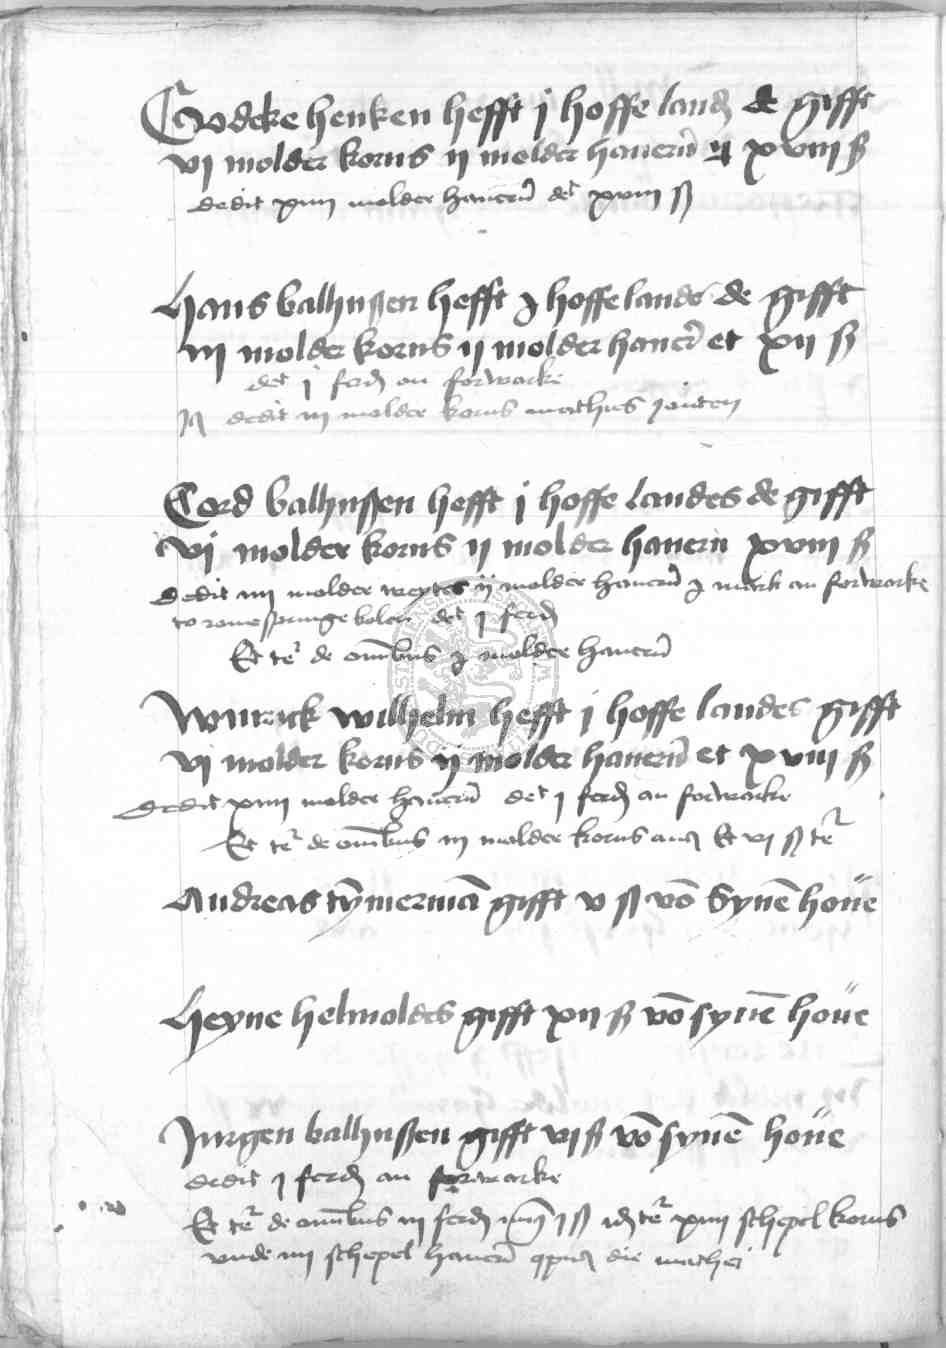 Godeke henken hefft j hoffe landes de gifft
vj molder korns ij molder hauern̄ xviij ß
dedit xiiij molder hauern̄ det xviij ß
Hans balhussen hefft hoffelandes de gifft
iij molder korns ij molder hauer̄ et xij ß
det j ferd̄ an forwarke
dedit iij molder korns mathus
Cord balhussen hefft j hoffe landes de gifft
vj molder korns ij molder hauern xviij ß
dedit iiij molder weytes ij molder hauern̄ mark an forwarke
to det j ferd̄
Et te͛ de om̄bus molder hauern̄
Winrick wilhelm hefft j hoffe landes gifft
vj molder korns ij molder hauern̄ et xviij ß
dedit xiiij molder hauern̄ det j ferd̄ an forwarke
Et te͛ de om̄bus iij molder korns Et vj ß te͛
Andreas tȳmermā gifft v ß vō Synē houe
Heyne helmoldes gifft xij ß vō synē houe
Jurgen balhussen gifft vij ß vō synē houe
dedit j ferd̄ an forwarke
Et te͛ de om̄bus iij ferd̄ j ß te͛ xiiij schepel korns
vnde iiij schepel hauern̄ die mathei